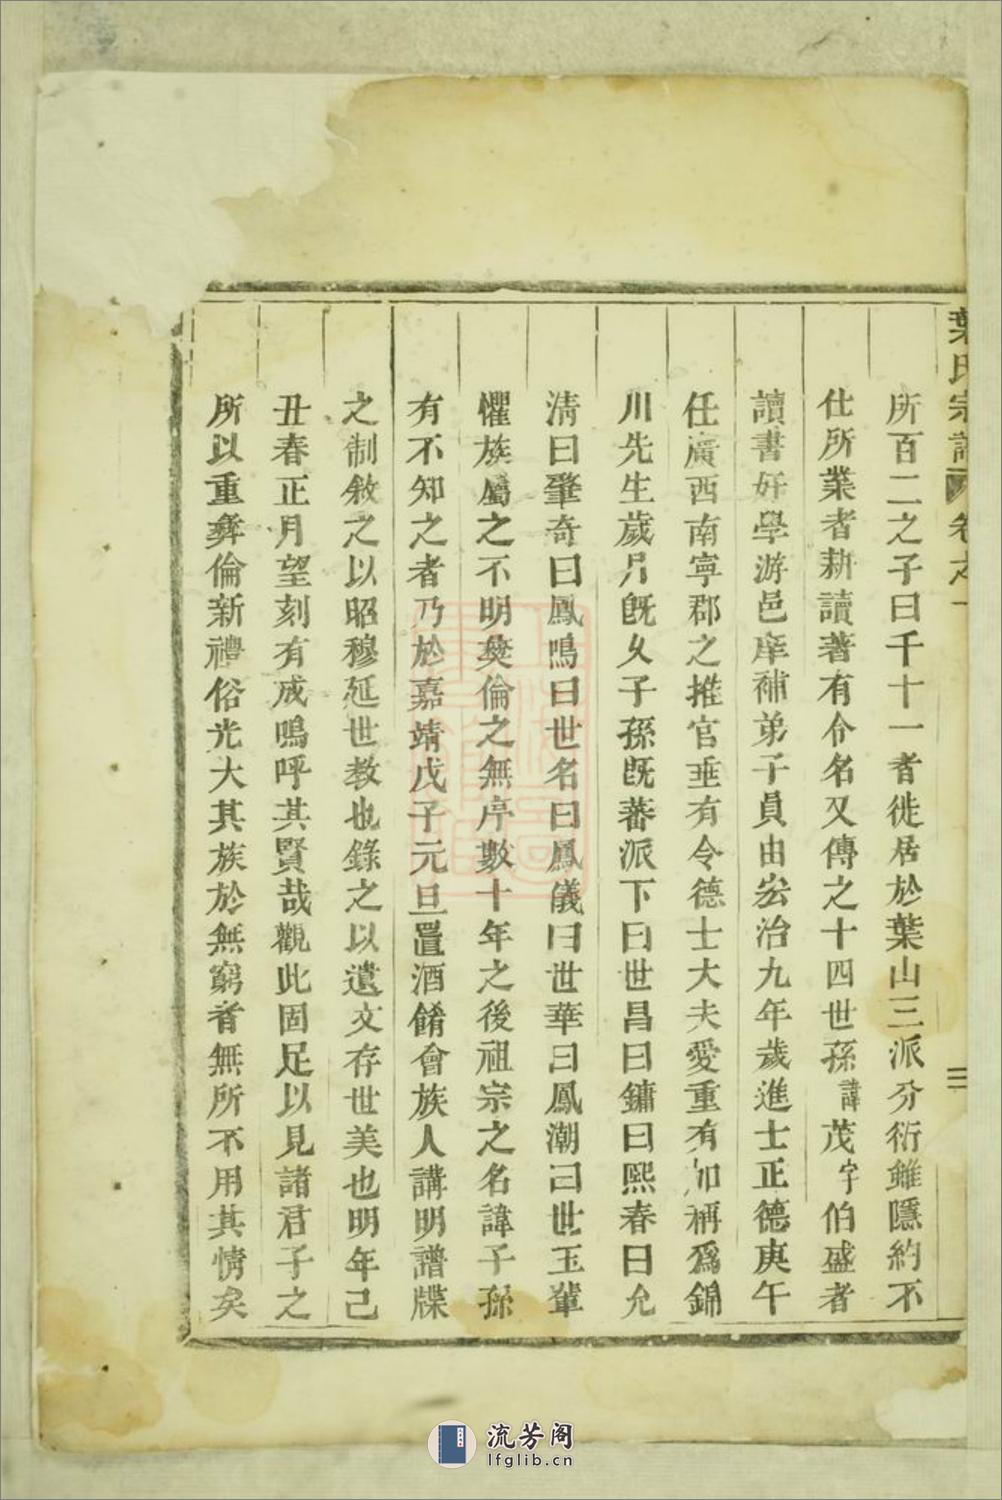 葉氏宗譜 卷之一 三
所百二之子曰千十一者徙居於葉山三派分衍雖隱約不
仕所業者耕讀著有令名又傳之十四世孫諱茂字伯盛者
讀書好學游邑庠補弟子員由宏治九年歲進士正德庚午
任廣西南寧郡之推官垂有令德士大夫愛重有加稱爲錦
川先生歲月既久子孫既蕃派下曰世昌曰鏞曰熙春曰允
清曰肇奇曰鳳鳴曰世名曰鳳儀曰世華曰鳳潮曰世玉輩
懼族屬之不明彜倫之無序數十年之後祖宗之名諱子孫
有不知之者乃於嘉靖戊子元旦置酒餚會族人講明譜牒
之制敘之以昭穆延世教也錄之以遺文存世美也明年己
丑春正月望刻有成嗚呼其賢哉觀此固足以見諸君子之
所以重彜倫新禮俗光大其族於無窮者無所不用其情矣
流芳阁
lfglib.cn